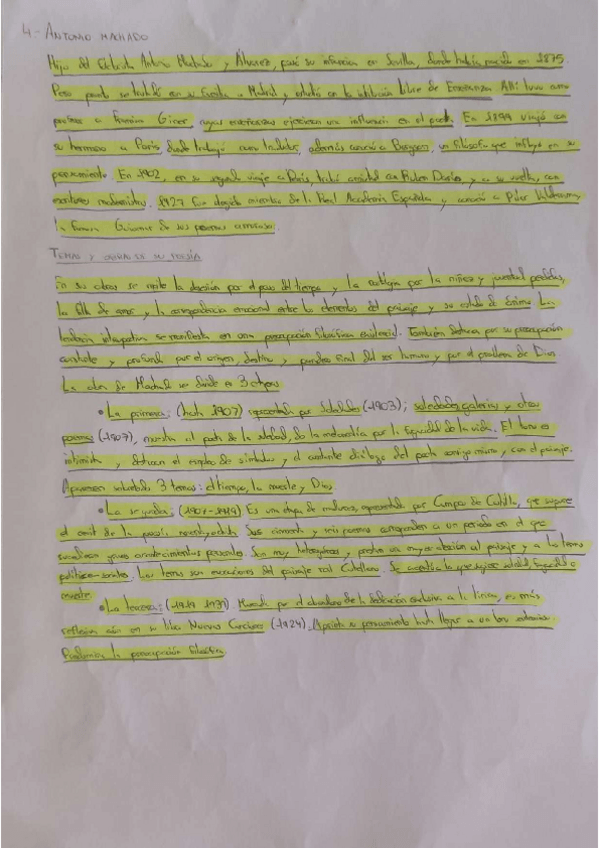 4.- ANTONIO MACHADO
Hijo del Antonio Machado y Álvarez, pasó su infancia en Sevilla, donde había nacido en 1875
Pero pronto se trasladó en su familia a Madrid y estudió en la institución libre de Enseñanza Allí tuvo como
profesor a Francisco Giner, cuyas enseñanzas ejercieron una influencia en el poeta. En 1899 viajó con
su hermano a París, donde trabajó como traductor, además conoció a Bergson, un filósofo que influyó en su
pensamiento En 1902, en su segundo viaje a París, trabó amistad con Rubén Darío y a su vuelta, con
escritores modernistas. 1927 fue elegido miembro de la Real Academia Española y conoció a Pilar Valderrama,
la famosa Guiomar de sus poemas amorosos.
TEMAS Y OBRAS DE SU POESÍA
En sus obras se repite la obsesión por el paso del tiempo y la nostalgia por la niñez y juventud perdidas,
la falta de amor y la correspondencia emocional entre los elementos del paisaje y su estado de ánimo La
se manifiesta en una preocupación filosófica existencial. También destaca por su preocupación
constante y profunda por el origen, destino y paradero final del ser humano y por el problema de Dios
La obra de Machado se divide en 3 etapas
• La primera: (hasta 1907) representada por Soledades (1903); soledades, galerías y otros
poemas (1907), muestra al poeta de la soledad, de la melancolía por la fugacidad de la vida. El tono es
intimista y destacan el empleo de símbolos y el constante diálogo del poeta consigo mismo y con el paisaje.
Aparecen sobretodo 3 temas: el tiempo, la muerte y Dios
• La segunda: (1907-1919) Es una etapa de madurez, representada por Campos de Castilla, que supone
el cenit de la poesía Sus cincuenta y seis poemas corresponden a un periodo en el que
sucedieron graves acontecimientos personales Son muy heterogéneos, y presta una mayor atención al paisaje y a los temas
políticos-sociales. Los temas son evocaciones del paisaje rural Castellano. Se acentúa lo que sugiere soledad, fugacidad o
muerte
• La tercera: (1919 1939). Marcada por el abandono de la dedicación exclusiva a la lírica, es más
reflexivo aún en su libro Nuevas Canciones (1924). su pensamiento hasta llegar a un tono
Predomina la preocupación filosófica